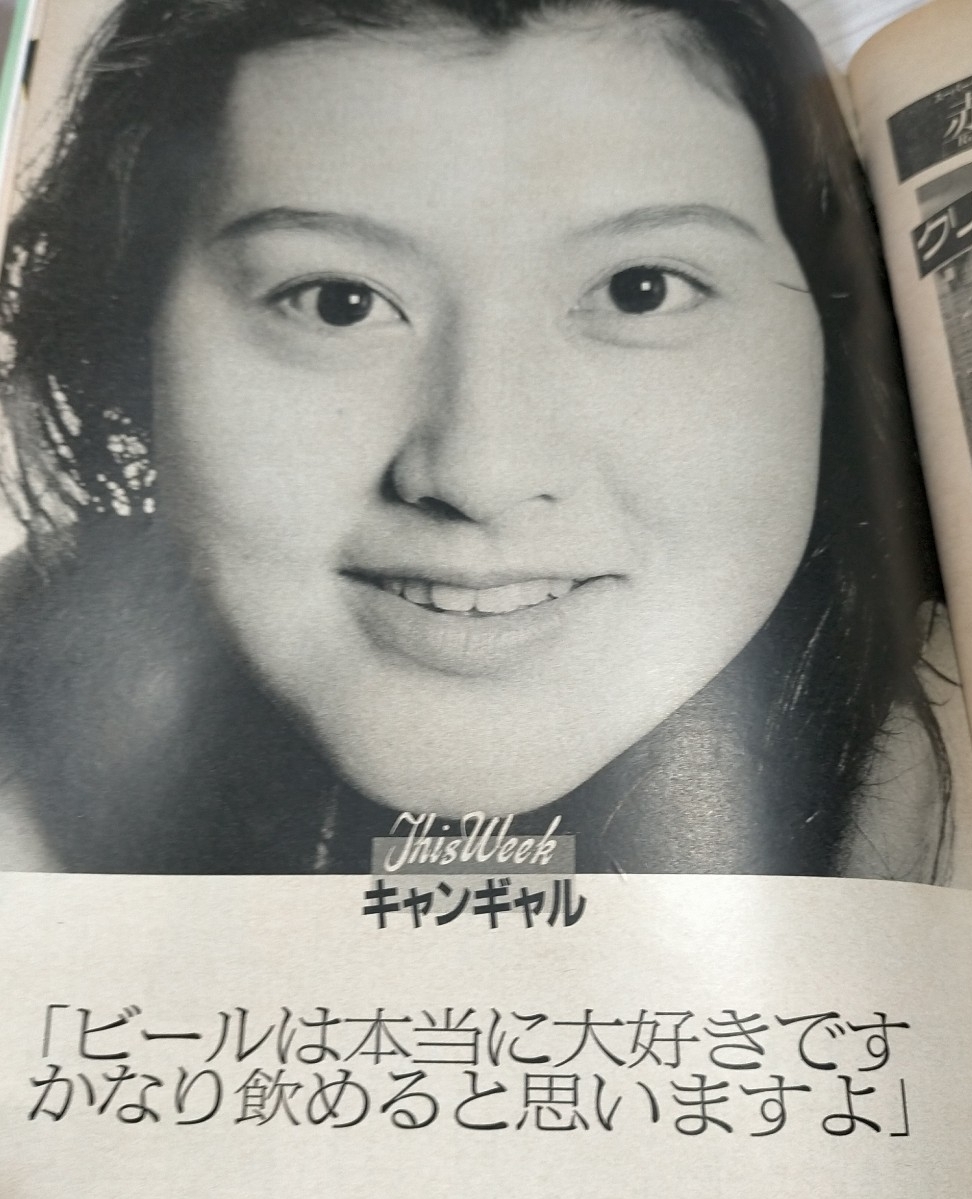 This Week
キャンギャル
「ビールは本当に大好きです
かなり飲めると思いますよ」